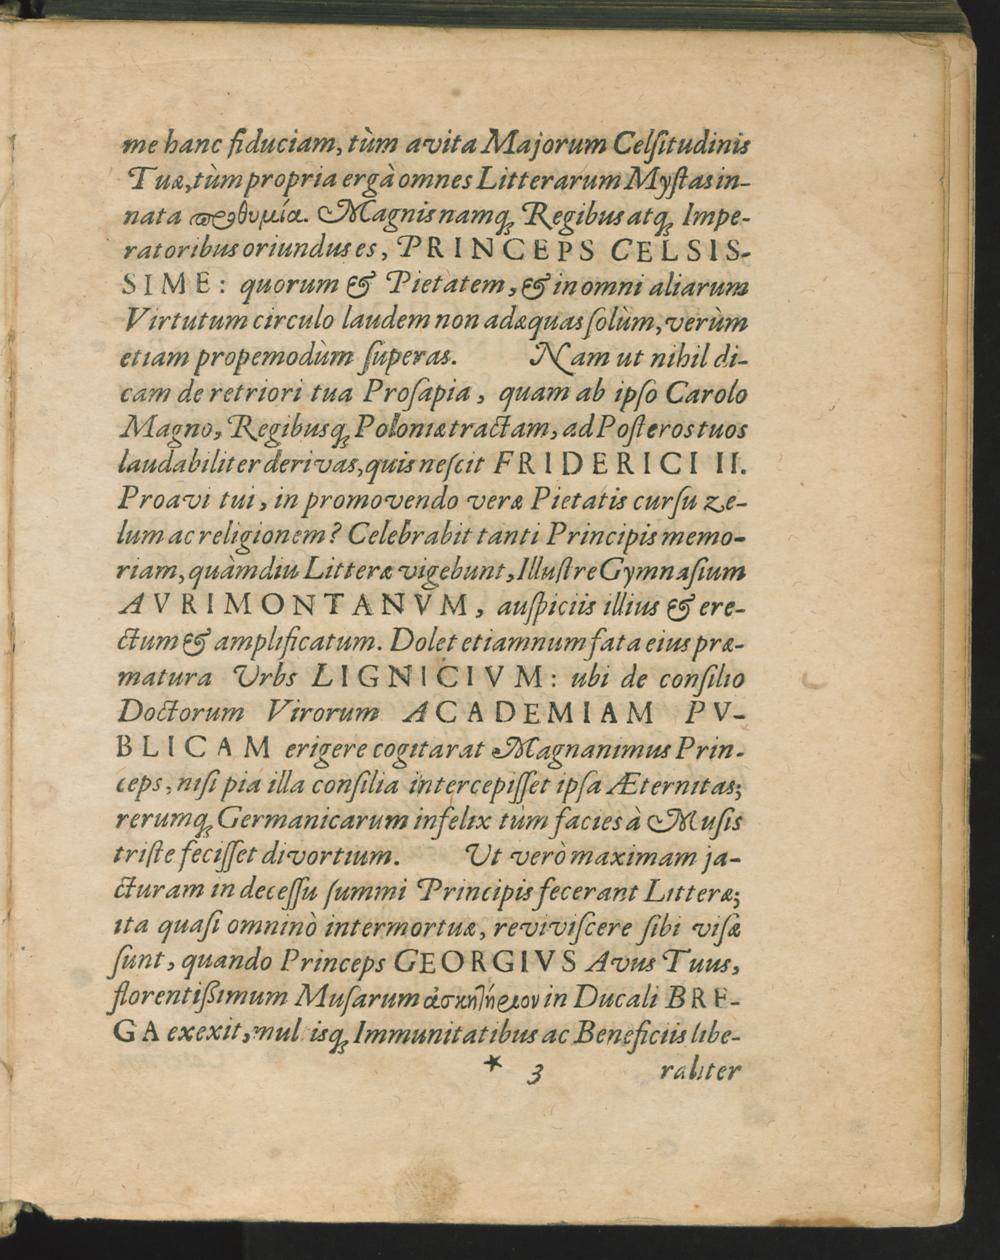 me hanc fiduciam, tùm avita Majorum Celſitudinis
Tuæ, tùm propria ergà omnes Litterarum Myſtas in-
nata προθυμία. Magnis namq́; Regibus atq́; Impe-
ratoribus oriundus es, PRINCEPS CELSIS-
SIME: quorum & Pietatem, & in omni aliarum
Virtutum circulo laudem non adæquas ſolùm, verùm
etiam propemodùm ſuperas. Nam ut nihil di-
cam de retriori tua Proſapia, quam ab ipſo Carolo
Magno, Regibusq́; Poloniæ tractam, ad Poſteros tuos
laudabiliter derivas, quis neſcit FRIDERICI II.
Proavi tui, in promovendo veræ Pietatis curſu ze-
lum ac religionem? Celebrabit tanti Principis memo-
riam, quàmdiu Litteræ vigebunt, Illuſtre Gymnaſium
AVRIMONTANVM, auſpiciis illius & ere-
ctum & amplificatum. Dolet etiamnum fata eius præ-
matura Urbs LIGNICIVM: ubi de conſilio
Doctorum Virorum ACADEMIAM PV-
BLICAM erigere cogitarat Magnanimus Prin-
ceps, niſi pia illa conſilia intercepiſſet ipſa Æternitas;
rerumq́; Germanicarum infelix tùm facies à Muſis
triſte feciſſet divortium. Ut verò maximam ja-
cturam in deceſſu ſummi Principis fecerant Litteræ;
ita quaſi omninò intermortuæ, reviviſcere ſibi viſæ
ſunt, quando Princeps GEORGIVS Avus Tuus,
florentiſsimum Muſarum ἀσκητήριον in Ducali BRE-
GA exexit, mul isq́; Immunitatibus ac Beneficiis libe-
* 3 raliter